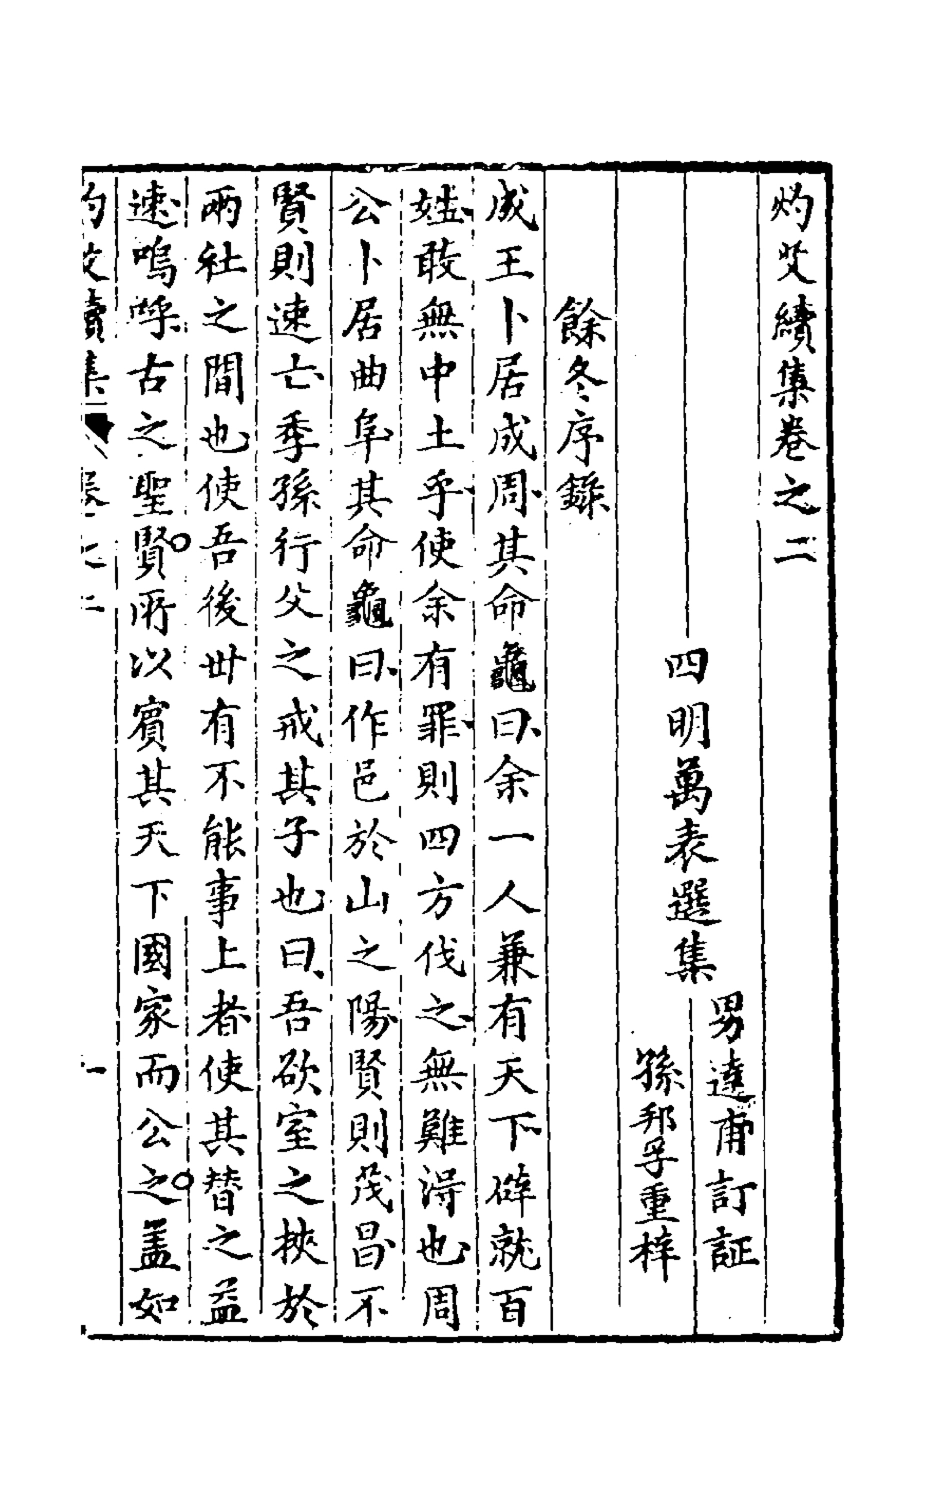 灼艾續集卷之二
四明萬表選集
男達甫訂証
孫邦孚重梓
餘冬序錄
成王卜居成周其命龜曰余一人兼有天下辟就百
姓敢無中土乎使余有罪則四方伐之無難得也周
公卜居曲阜其命龜曰作邑於山之陽賢則茂昌不
賢則速亡季孫行父之戒其子也曰吾欲室之挾於
兩社之間也使吾後世有不能事上者使其替之益
速嗚呼古之聖賢所以賓其天下國家而公之盖如
灼艾續集 卷之二 一